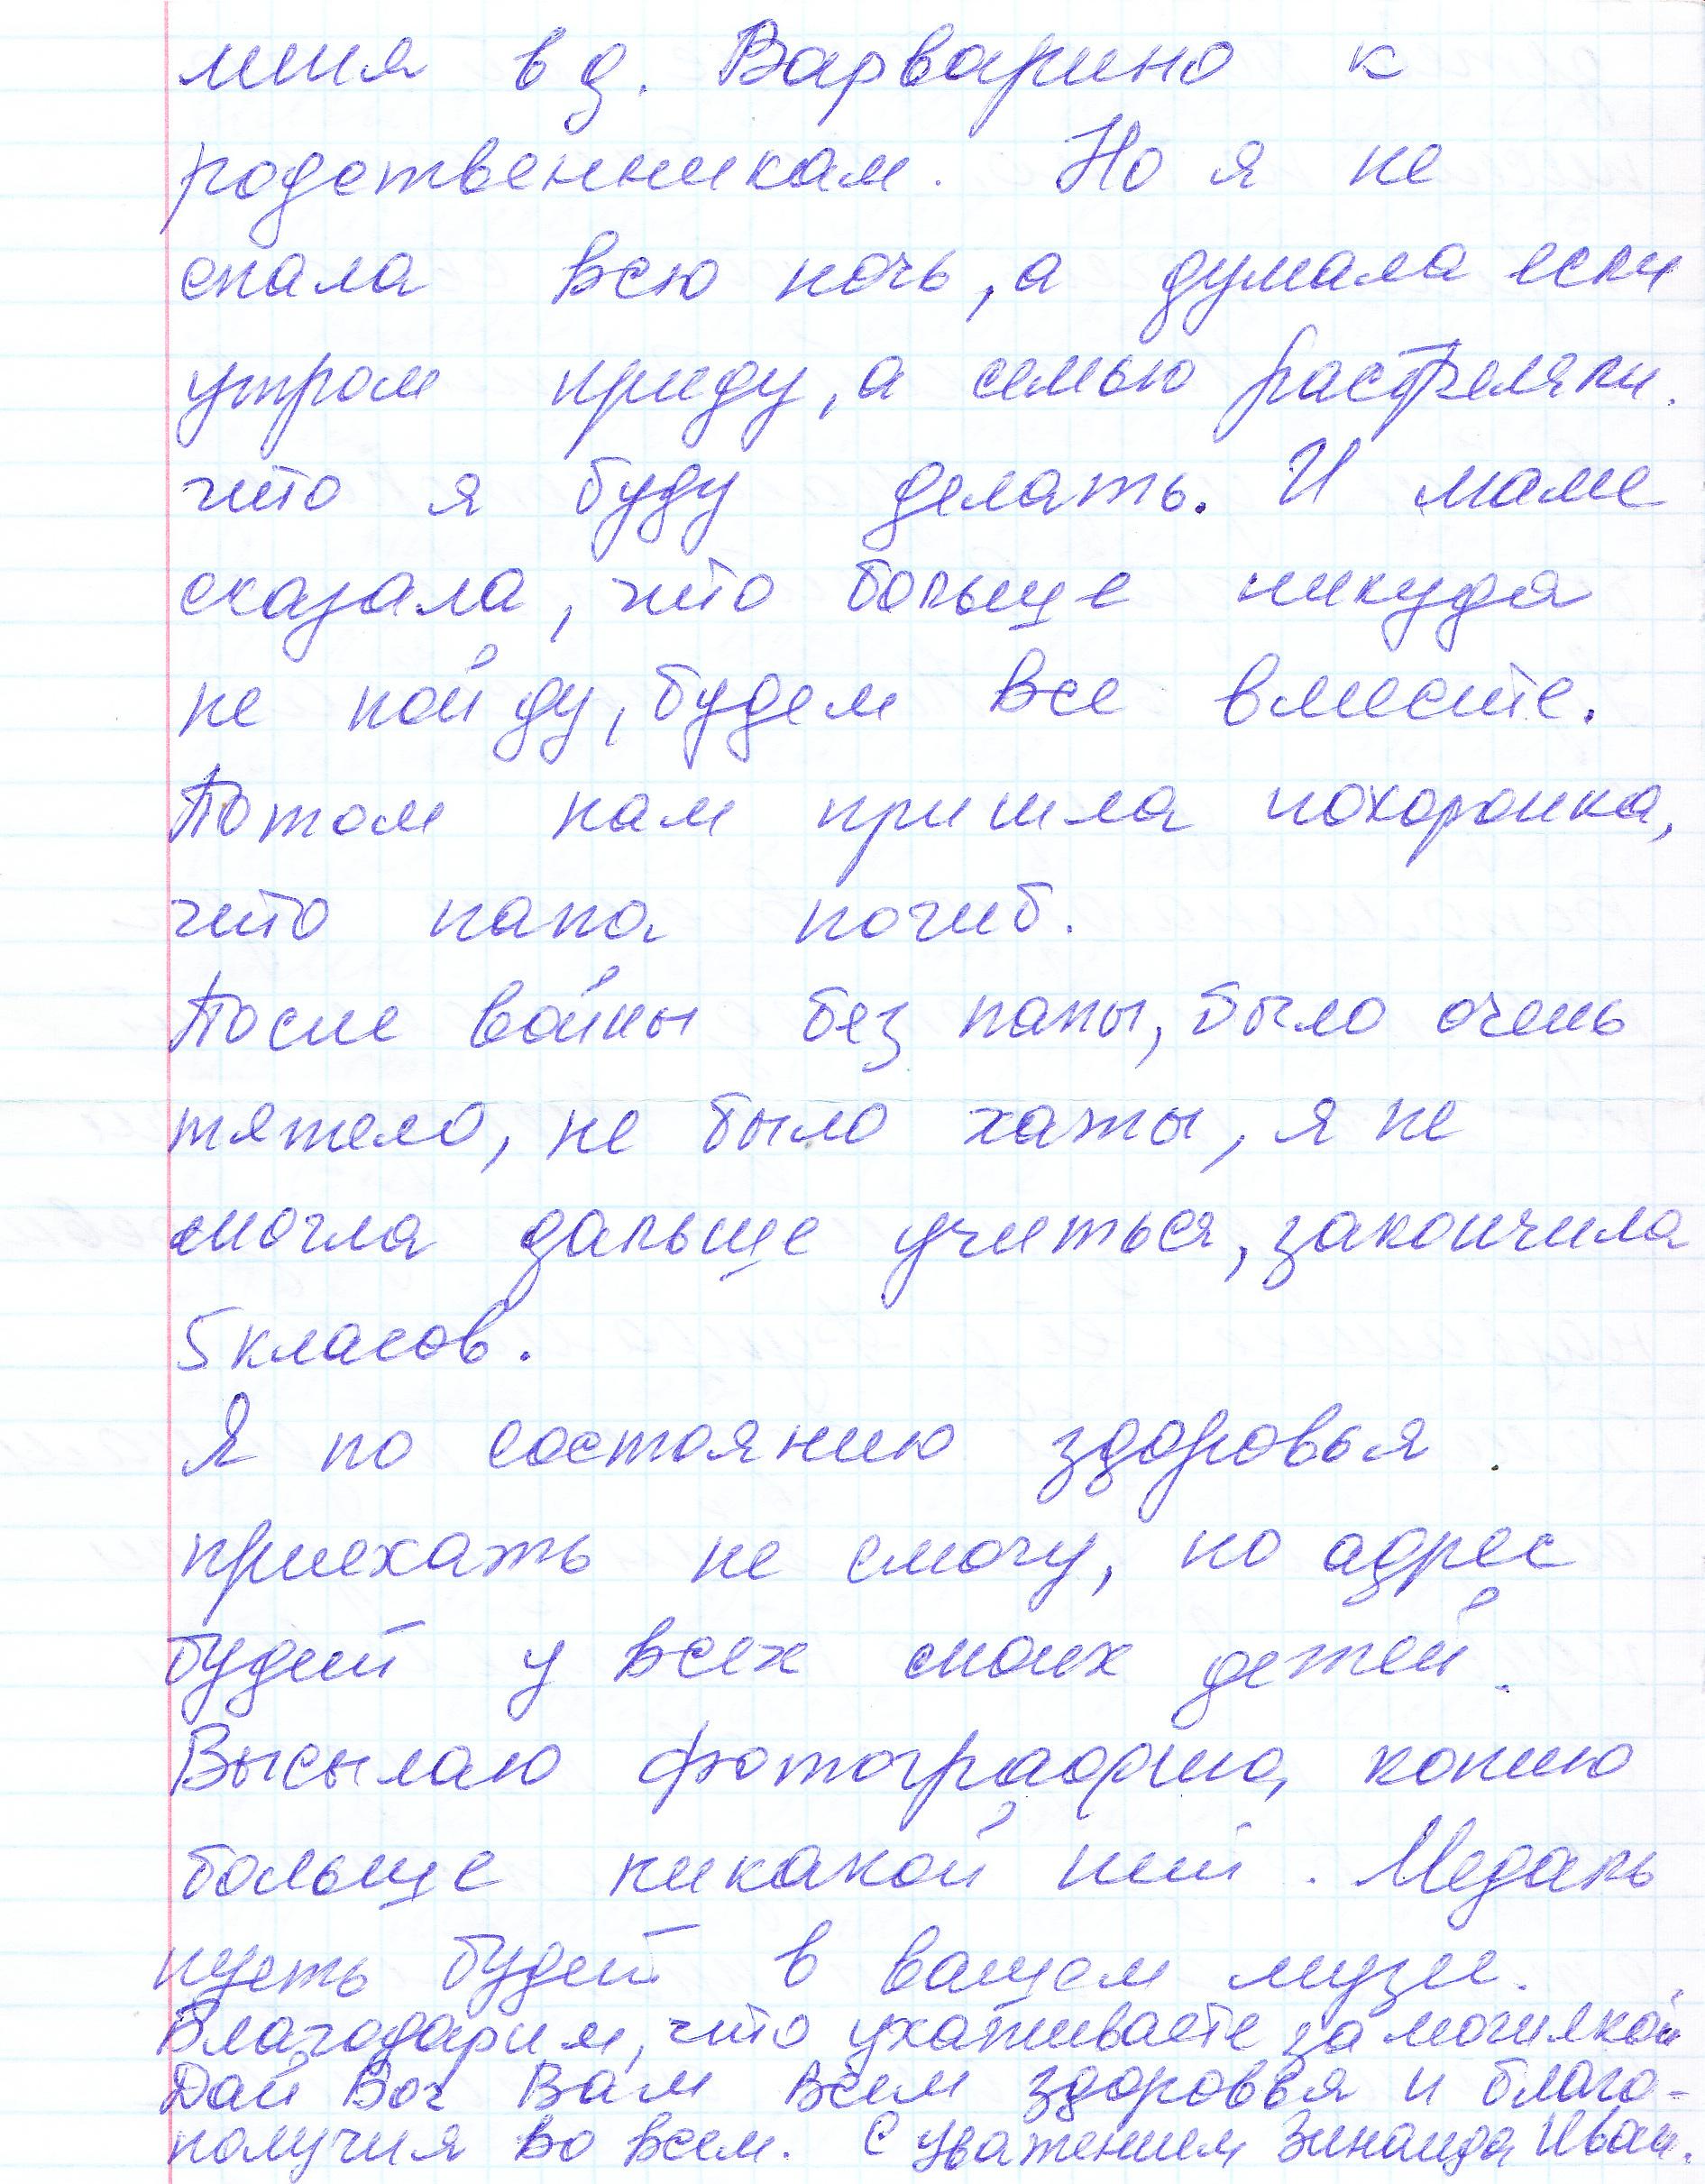 миля в д. Варварино к
родственникам. Но я не
спала всю ночь, а думала если
утром приду, а семью растреляли.
что я буду делать. И маме
сказала, что больше никуда
не пойду, будем все вместе.
Потом нам пришла похоронка,
что папа погиб.
После войны без папы, было очень
тяжело, не было хаты, я не
могла дальше учиться, закончила
5 класов.
Я по состоянию здоровья
приехать не смогу, но адрес
будет у всех моих детей.
Высылаю фотографию, копию
больше никакой нет. Медаль
пусть будет в вашем музеи.
Благодарим, что ухаживаете за могилкой
Дай Бог Вам всем здоровья и благо-
получия во всем. С уважением Зинаида Иван.